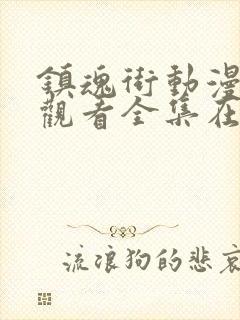 鎮魂街動漫
觀看全集在
流浪狗的悲哀